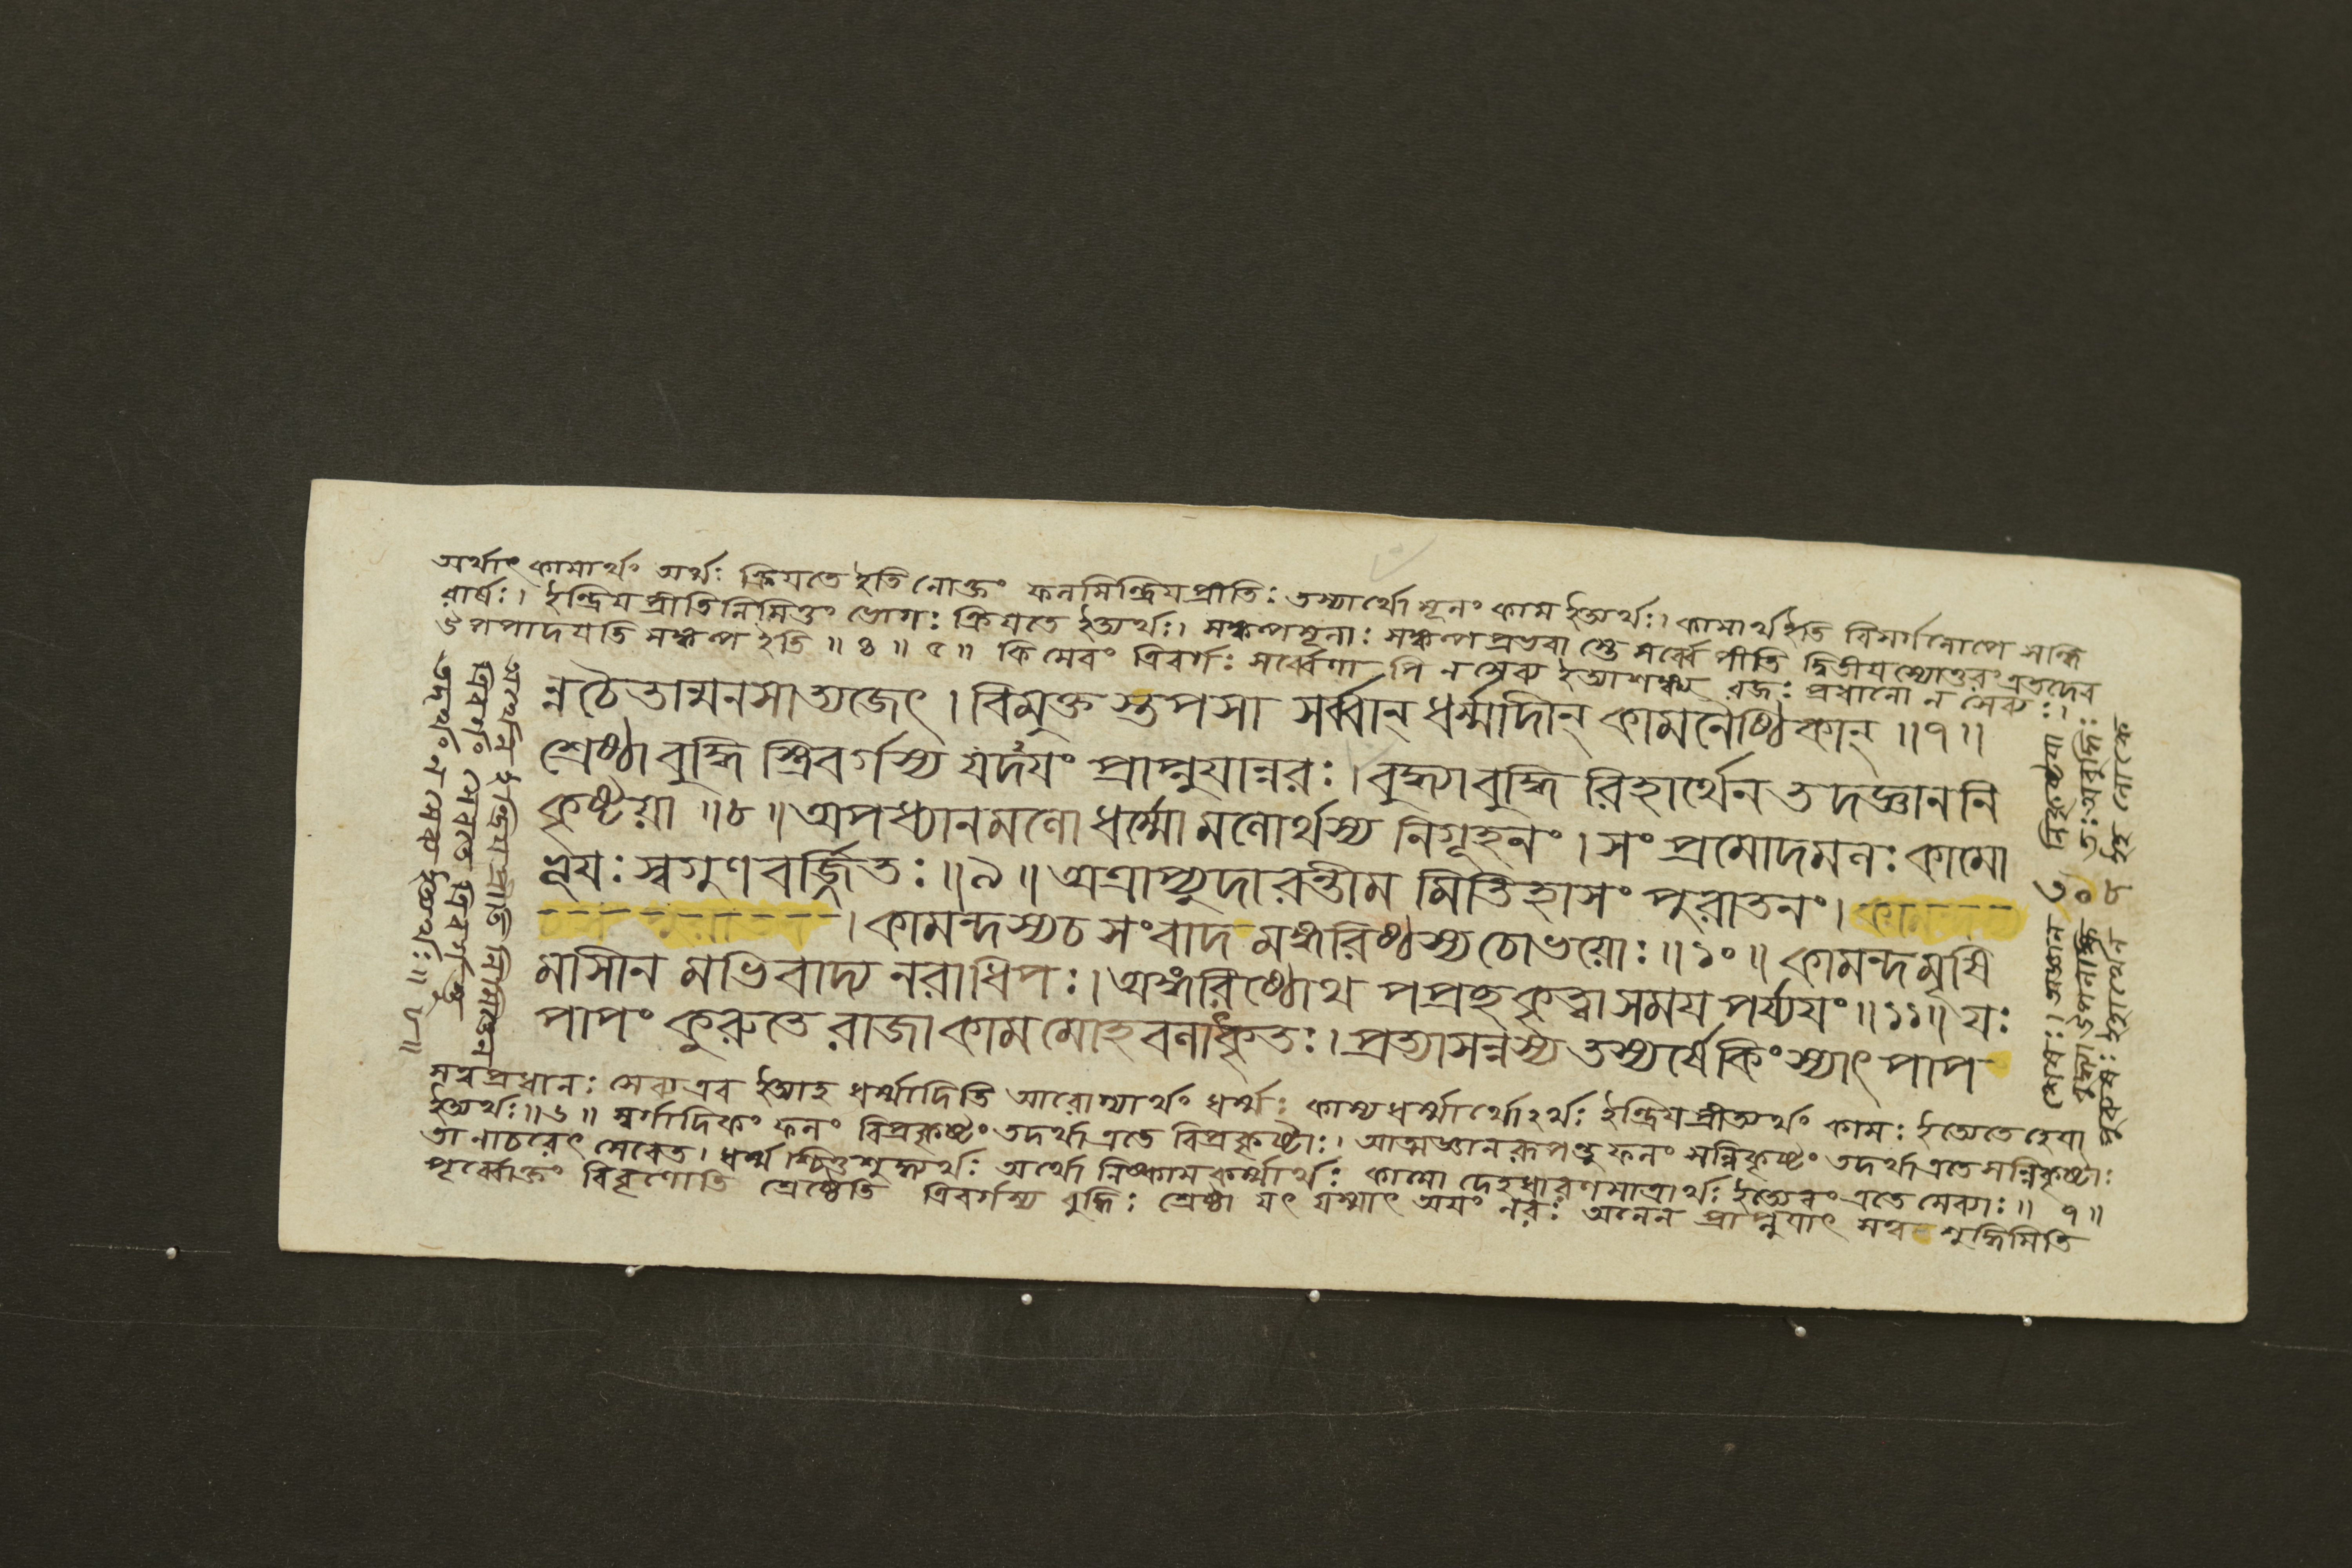 অর্থাৎ কামার্থং অর্থঃ ক্রিয়তে ইতি নোক্তং ফলমিন্দ্রিয়প্রীতিঃ তস্যার্থো মূলং কাম ইত্যর্থঃ। কামার্থ ইতি বিসর্গলোপে সন্ধি
রার্ষঃ। ইন্দ্রিয়প্রীতিনিমিত্তং ভোগঃ ক্রিয়তে ইত্যর্থঃ। সঙ্কল্পমূলাঃ সঙ্কল্পপ্রভবা স্তে সর্ব্বে পীতি দ্বিতীয়স্যোত্তরং এতদেব
উপপাদয়তি সঙ্কল্প ইতি ॥ ৪ ॥ ৫ ॥ কিমেবং ত্রিবর্গঃ সর্ব্বেণাপি ন সেব্য ইত্যাশঙ্ক্য রজঃ প্রধানো ন সেব্যঃ।
ন্নচৈতান্মনসাত্যজেৎ। বিমুক্ত স্তপসা সর্ব্বান্ ধর্ম্মাদীন্ কামনৈষ্ঠিকান্ ॥৭॥
শ্রেষ্ঠা বুদ্ধি স্ত্রিবর্গস্য যদয়ং প্রাপ্নুয়ান্নরঃ। বুদ্ধ্যা বুদ্ধি রিহার্থেন তদজ্ঞাননি
কৃষ্টয়া ॥৮॥ অপধ্যানমলো ধর্ম্মো মলোর্থস্য নিগূহনং। সং প্রমোদমলঃ কামো
ভূয়ঃ স্বগুণবর্জ্জিতঃ ॥৯॥ অত্রাপ্যুদাহরন্তীম মিতিহাসং পুরাতনং।
। কামন্দস্যচ সংবাদ মঙ্গরিষ্ঠস্য চোভয়োঃ ॥১০॥ কামন্দমৃষি
মাসীন মভিবাদ্য নরাধিপঃ। অঙ্গরিষ্ঠোথ পপ্রচ্ছ কৃত্বা সময় পর্য্যয়ং ॥১১॥ যঃ
পাপং কুরুতে রাজা কাম মোহ বলাৎকৃতঃ। প্রত্যাসন্নস্য তস্যর্ষে কিং স্যাৎ পাপ
সত্বপ্রধানঃ সেব্য এব ইত্যাহ ধর্ম্মাদিতি আরোগ্যার্থং ধর্ম্মঃ কাম্যধর্ম্মার্থোঽর্থঃ ইন্দ্রিয়প্রীত্যর্থং কামঃ ইত্যেতে হেয়া
ইত্যর্থঃ॥৬॥ স্বর্গাদিকং ফলং বিপ্রকৃষ্টং তদর্থা এতে বিপ্রকৃষ্টাঃ। আত্মজ্ঞানরূপন্তু ফলং সন্নিকৃষ্টং তদর্থা এতে সন্নিকৃষ্টাঃ
তানাচরেৎ সেবেত। ধর্ম্ম শ্চিত্তশুদ্ধ্যর্থঃ অর্থো নিষ্কামকর্ম্মার্থঃ কামো দেহধারণমাত্রার্থঃ ইত্যেবং এতে সেব্যাঃ॥ ৭॥
পূর্ব্বোক্তং বিবৃণোতি শ্রেষ্ঠেতি ত্রিবর্গস্য বুদ্ধিঃ শ্রেষ্ঠা যৎ যস্মাৎ অয়ং নরঃ অনেন প্রাপ্নুয়াৎ সত্ব শুদ্ধিমিতি
শেষঃ। অজ্ঞান